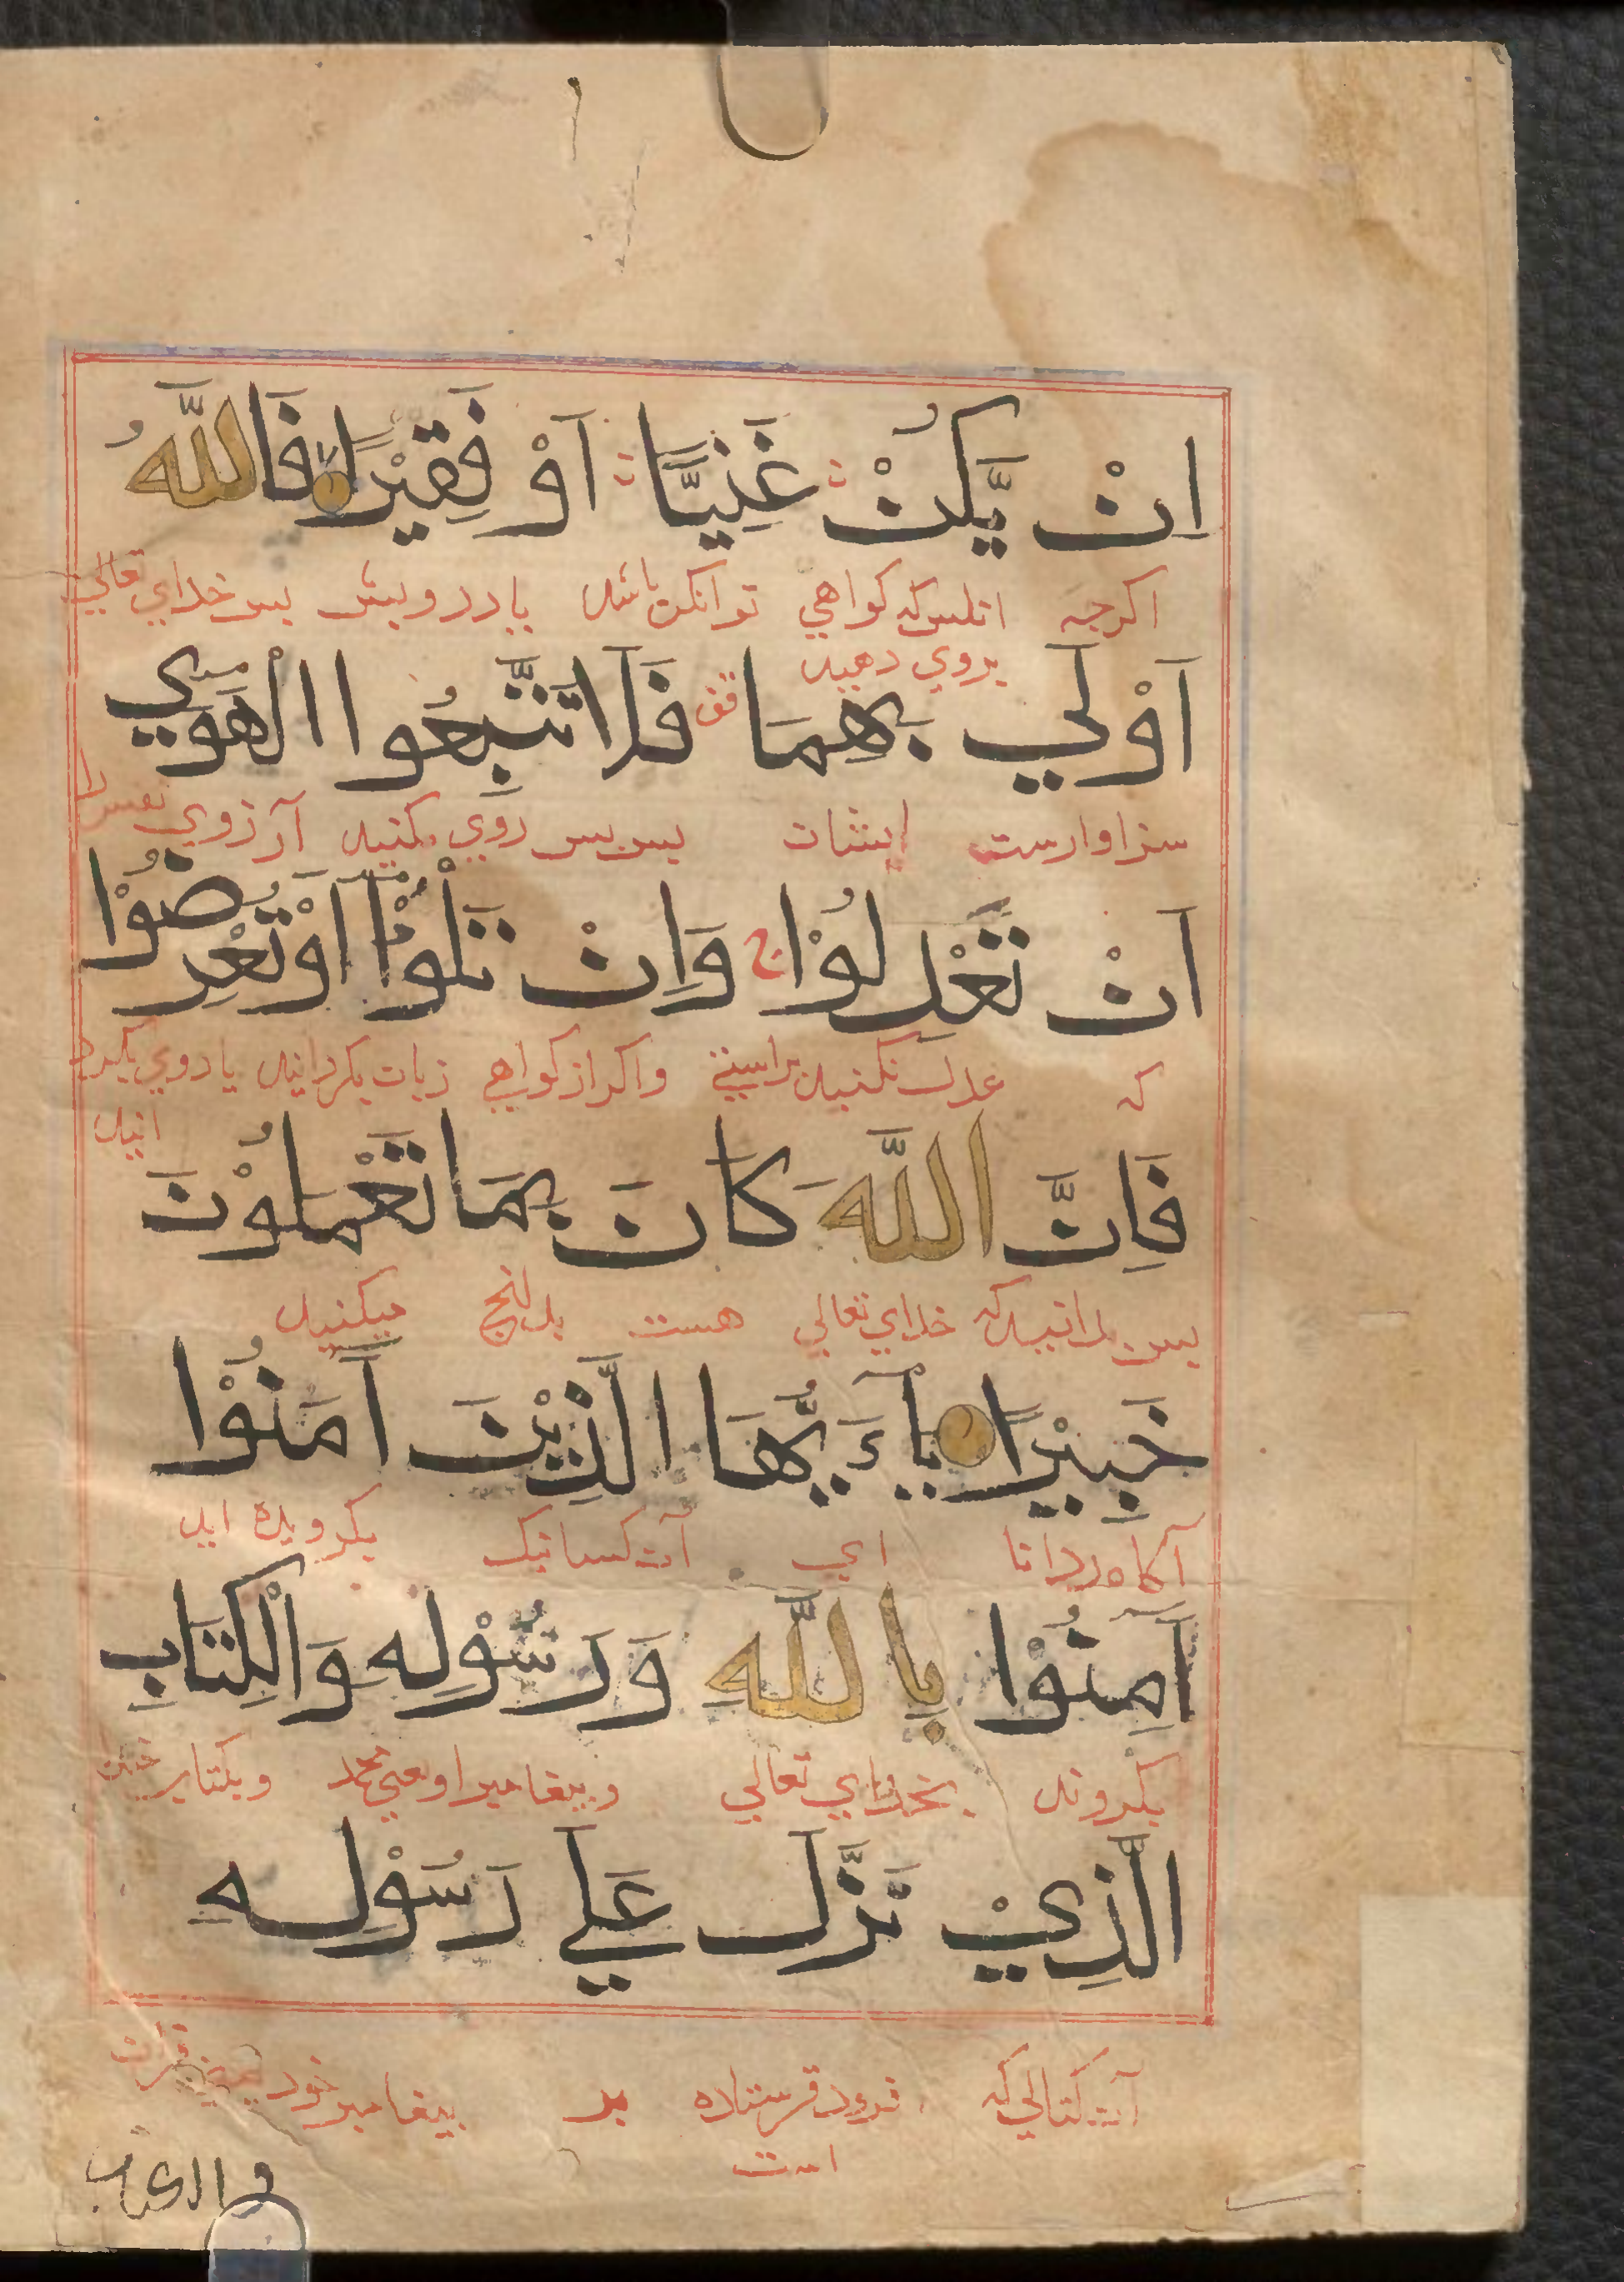 اِنْ يَّكُنْ غَنِيًّا اَوْ فَقِيْرًا فَاللّٰهُ
اكرجه انكس كه كواهي توانكر باشد يا درويش بس خداي تعالي
بروي دهيد
اَوْلٰي بِهِمَا قف فَلَا تَتَّبِعُوا الْهَوٰي
سزاوارست ايشان بس بس روي مكنيد آرزوي نفس را
اَنْ تَعْدِلُوْا ج وَاِنْ تَلْوٗا اَوْ تُعْرِضُوْا
كه عدل نكنيد براستي واكر از كواهي زبان بكردانيد يا روي بكرد
انيد
فَاِنَّ اللّٰهَ كَانَ بِمَا تَعْمَلُوْنَ
بس بدانيد كه خداي تعالي هست بدانج ميكنيد
خَبِيْرًا يٰآءَيُّهَا الَّذِيْنَ اٰمَنُوْا
آكاه ودانا اي آن كسانيك بكرويده ايد
اٰمِنُوْا بِاللّٰهِ وَرَسُوْلِهٖ وَالْكِتَابِ
بكرويد بخداي تعالي وبيغامبر او يعني محمد وبكتاب
الَّذِيْ نَزَّلَ عَلٰي رَسُوْلِهٖ
آن كتابي كه فرود فرستاده بر بيغامبر خود يعني قران
است
والكتاب